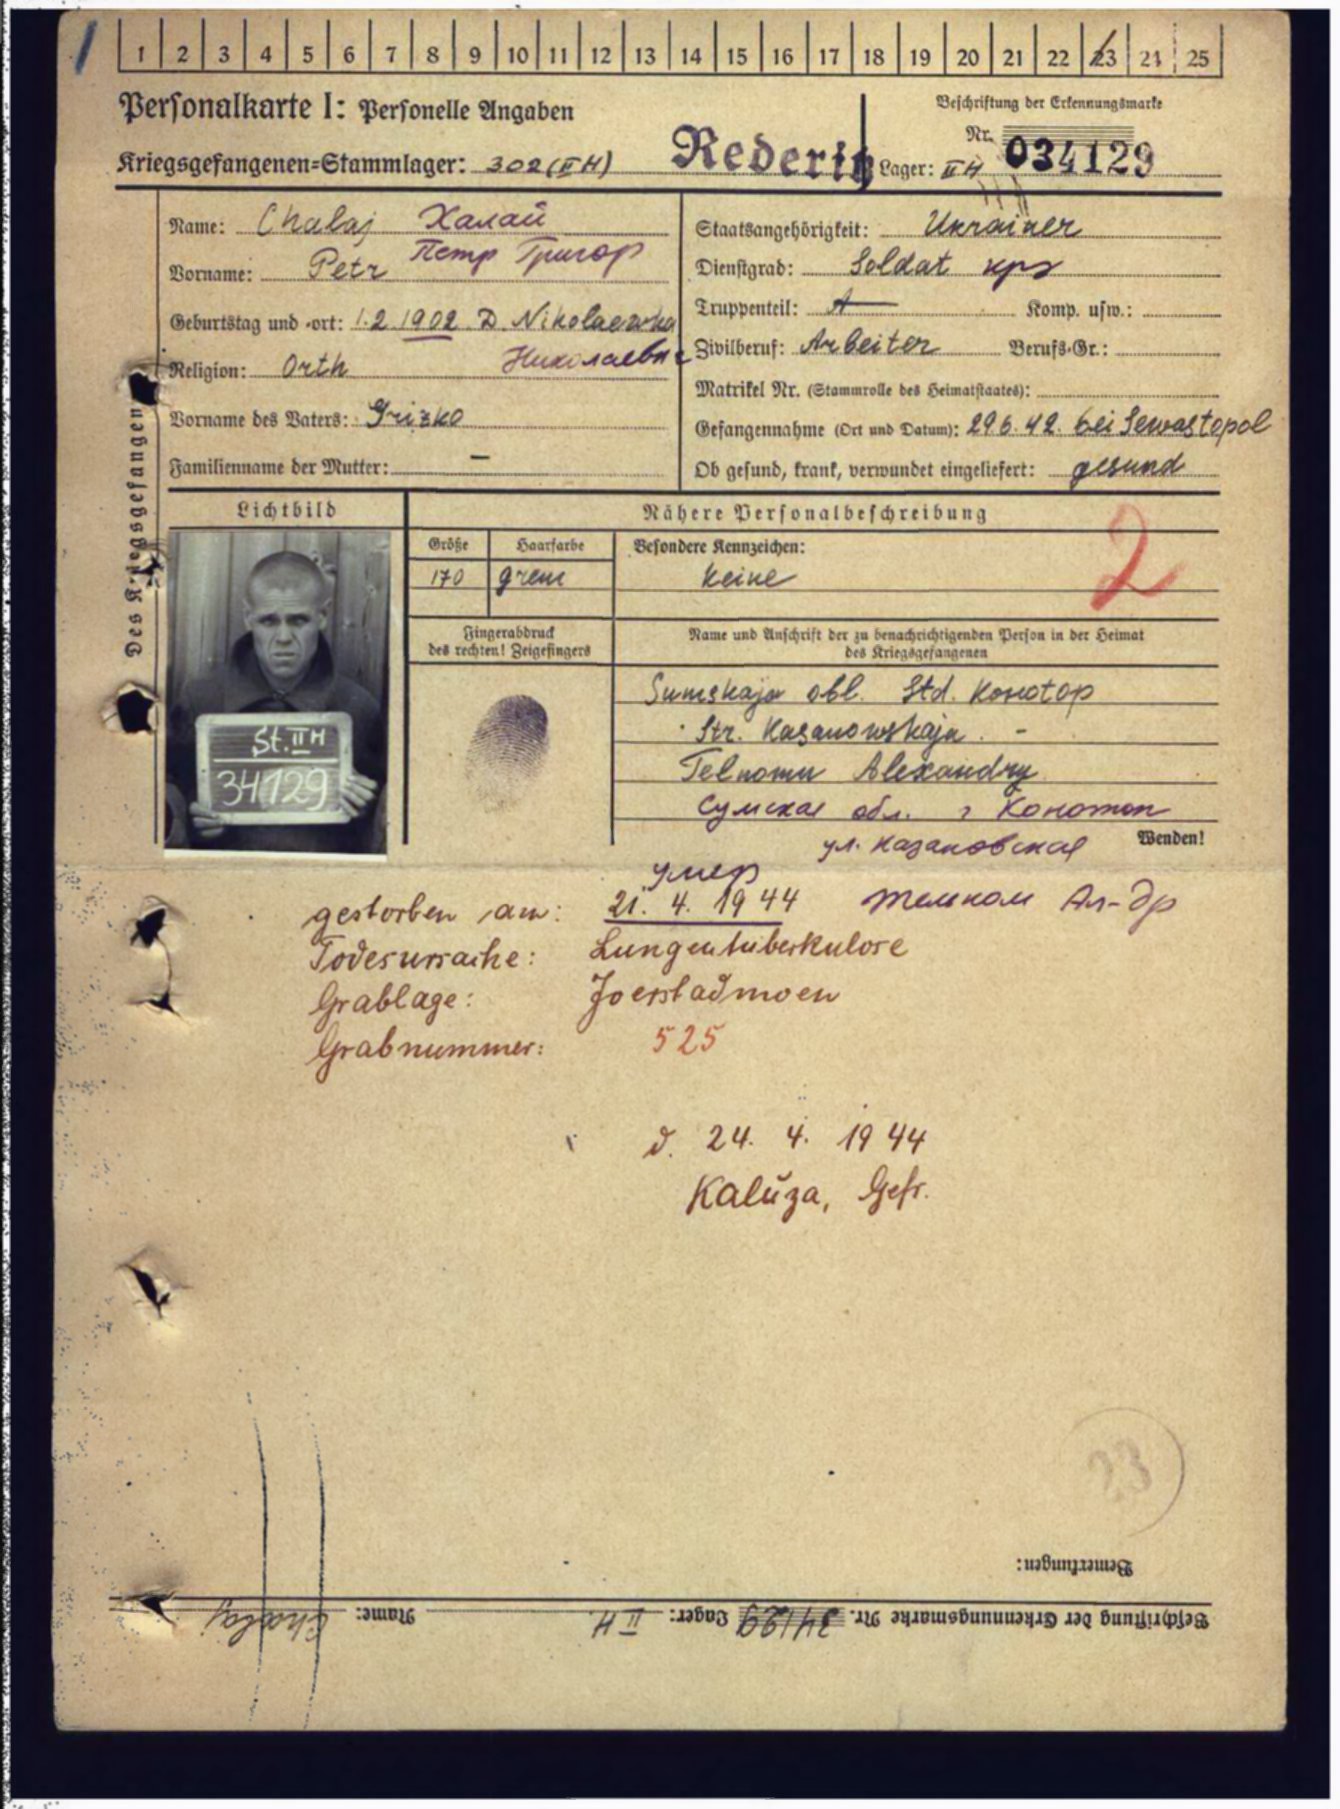 1 2 3 4 5 6 7 8 9 10 11 12 13 14 15 16 17 18 19 20 21 22 23 24 25
Personalkarte I: Personelle Angaben
Beschriftung der Erkennungsmarke
Kriegsgefangenen=Stammlager: 302 (II H) Rederitz
Nr. 034129
Lager: II H
Des Kriegsgefangenen
Name: Chalaj Халай
Vorname: Petr Петр Григор
Geburtstag und -ort: 1.2 1902. D. Nikolaewka
Николаевка
Religion: Orth
Vorname des Vaters: Grizko
Familienname der Mutter: –
Staatsangehörigkeit: Ukrainer
Dienstgrad: Soldat кр
Truppenteil: A Komp. usw.:
Zivilberuf: Arbeiter Berufs-Gr.:
Matrikel Nr. (Stammrolle des Heimatstaates):
Gefangennahme (Ort und Datum): 29 6. 42. bei Sewastopol
Ob gesund, krank, verwundet eingeliefert: gesund
Lichtbild
Nähere Personalbeschreibung
Größe Haarfarbe Besondere Kennzeichen:
170 keine
2
St. II H
34129
Fingerabdruck
des rechten! Zeigefingers
Name und Anschrift der zu benachrichtigenden Person in der Heimat
des Kriegsgefangenen
Sumskaja obl. Std. Konotop
Str. Kasanowskaja. -
Telnomu Alexandry
Сумская обл. г Конотоп
ул. Казановская
Wenden!
умер
gestorben am: 21. 4. 1944 Ал-др
Todesursache: Lungentuberkulose
Grablage: Joerstadmoen
Grabnummer: 525
d. 24. 4. 1944
Kaluža, Gefr.
23
Bemerkungen:
Beschriftung der Erkennungsmarke Nr. 34129 Lager: II H Name: Chalaj